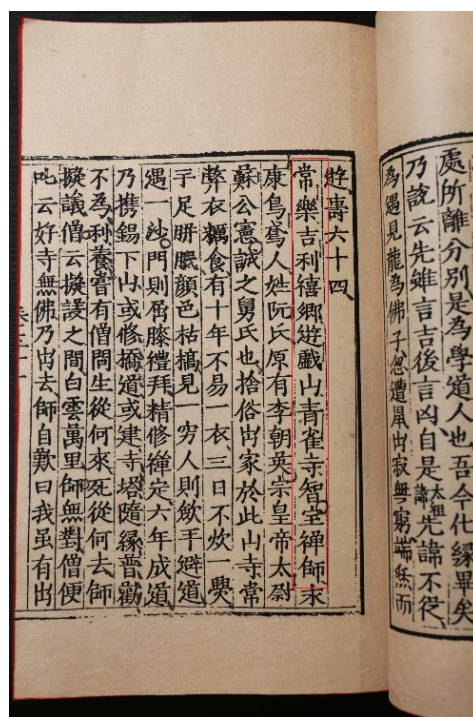 處所離分別是為學道人也吾今代緣畢矣
乃說云先雖言吉後言凶自是太祖諱先諱不從
為遇見龍為佛子忽遭鼠出寂無窮端然而
遊壽六十四
常樂吉利禧鄉遊戲山青雀寺智室禪師末
康鳥鳶人姓阮氏原有李朝英宗皇帝太尉
蘇公憲誠之舅氏也捨俗出家於此山寺常
弊衣糲食有十年不易一衣三日不炊一爨
手足胼胝顏色枯槁見一窮人則斂手避道
遇一沙門則屈膝禮拜精修禪定六年成道
乃携錫下山或修橋道或建寺塔隨緣普勸
不為利養嘗有僧問生從何來死從何去師
擬議僧云擬議之間白雲萬里師無對僧便
叱云好寺無佛乃出去師自歎曰我雖有出